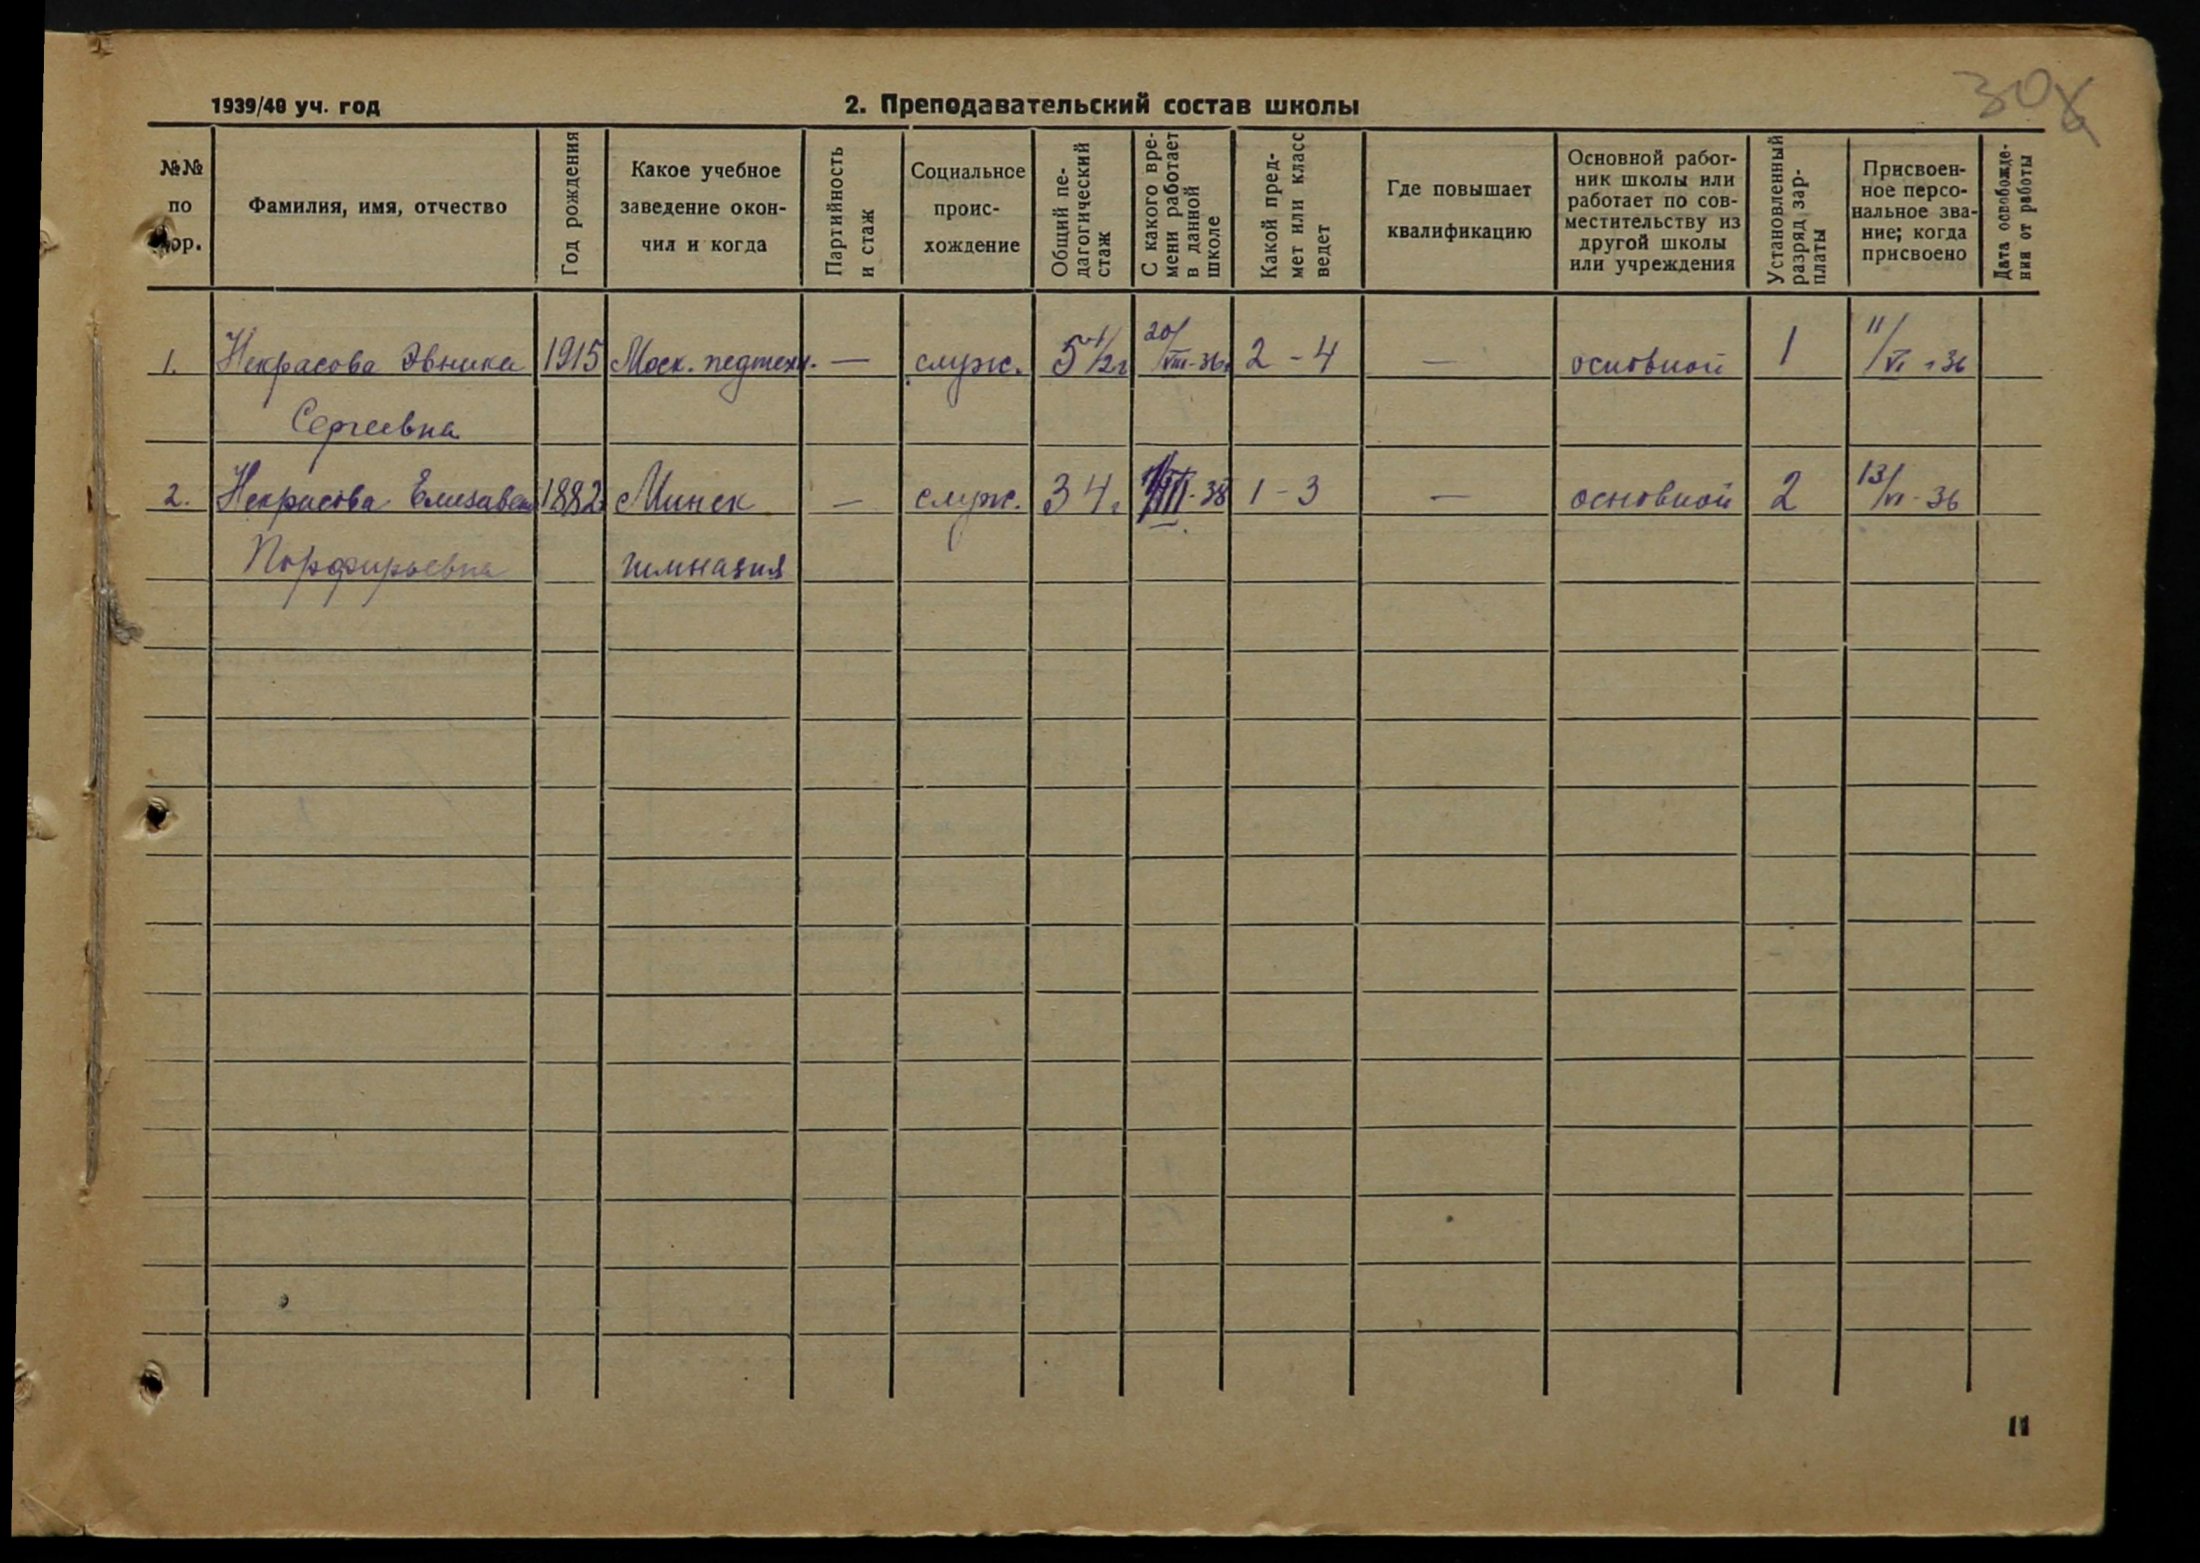 1939/40 уч. год
2. Преподавательский состав школы
30
№№ по пор.
Фамилия, имя, отчество
Год рождения
Какое учебное заведение окончил и когда
Партийность и стаж
Социальное проис-хождение
Общий пе-дагогический стаж
С какого вре-мени работает в данной школе
Какой пред-мет или класс ведет
Где повышает квалификацию
Основной работ-ник школы или работает по сов-местительству из другой школы или учреждения
Установленный разряд зар-платы
Присвоен-ное персо-нальное зва-ние; когда присвоено
Дата освобожде-ния от работы
1. Некрасова Эвника 1915 Моск. педтехн. — служ. 5 1/2 г 20/VIII-36г 2-4 — основной 1 11/VI-36
Сергеевна
2. Некрасова Елизавета 1882 Минск — служ. 34 г -38 1-3 — основной 2 13/VI-36
Порфирьевна гимназия
11